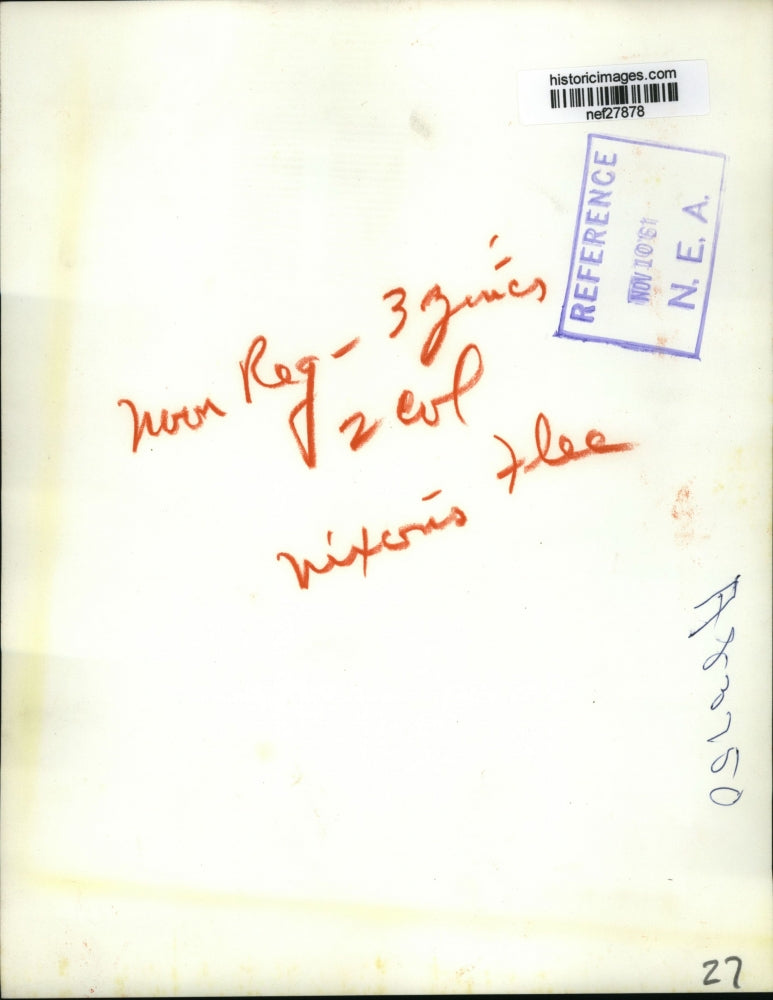 historicimages.com
nef27878
REFERENCE
NOV 10 '61
N. E. A.
Noon Reg - 3 Zincs
2 col
Nixons Flee
27